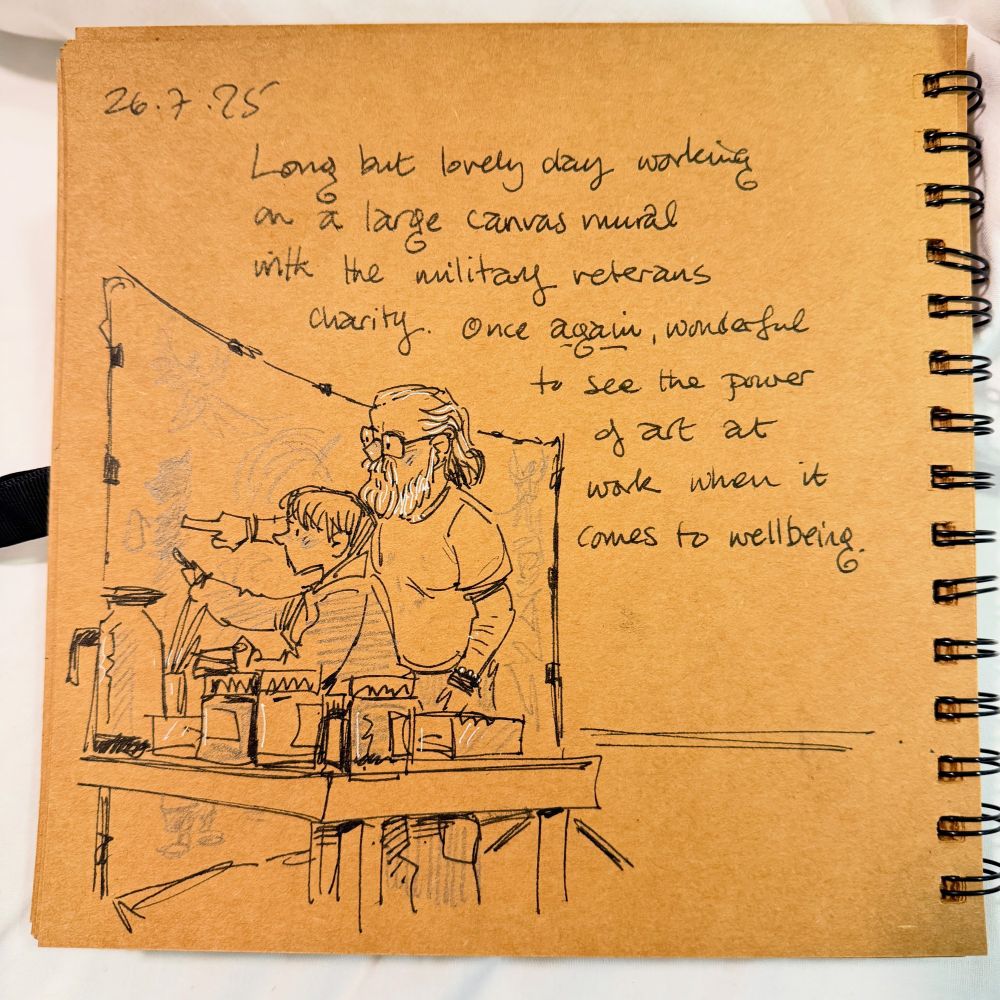 26.7.25
Long but lovely day working
on a large canvas mural
with the military veterans
charity. Once again, wonderful
to see the power
of art at
work when it
comes to wellbeing.